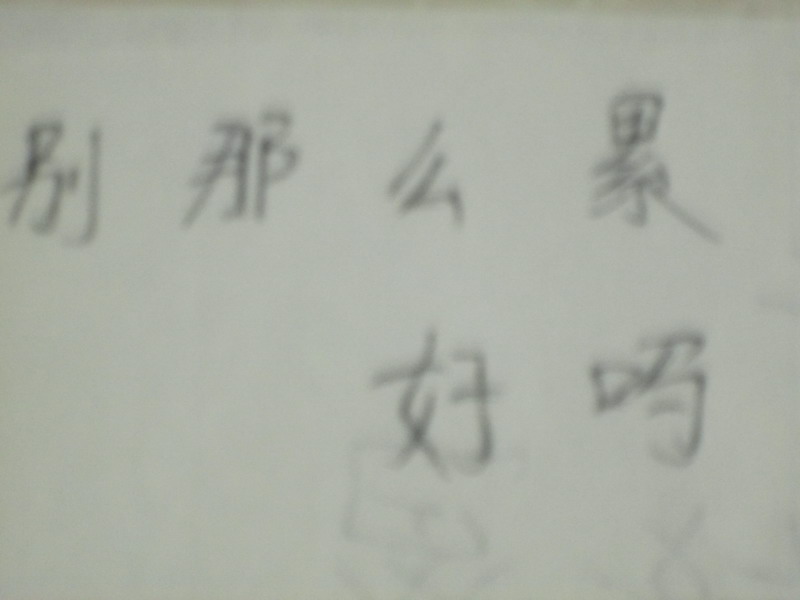 别那么累
好吗